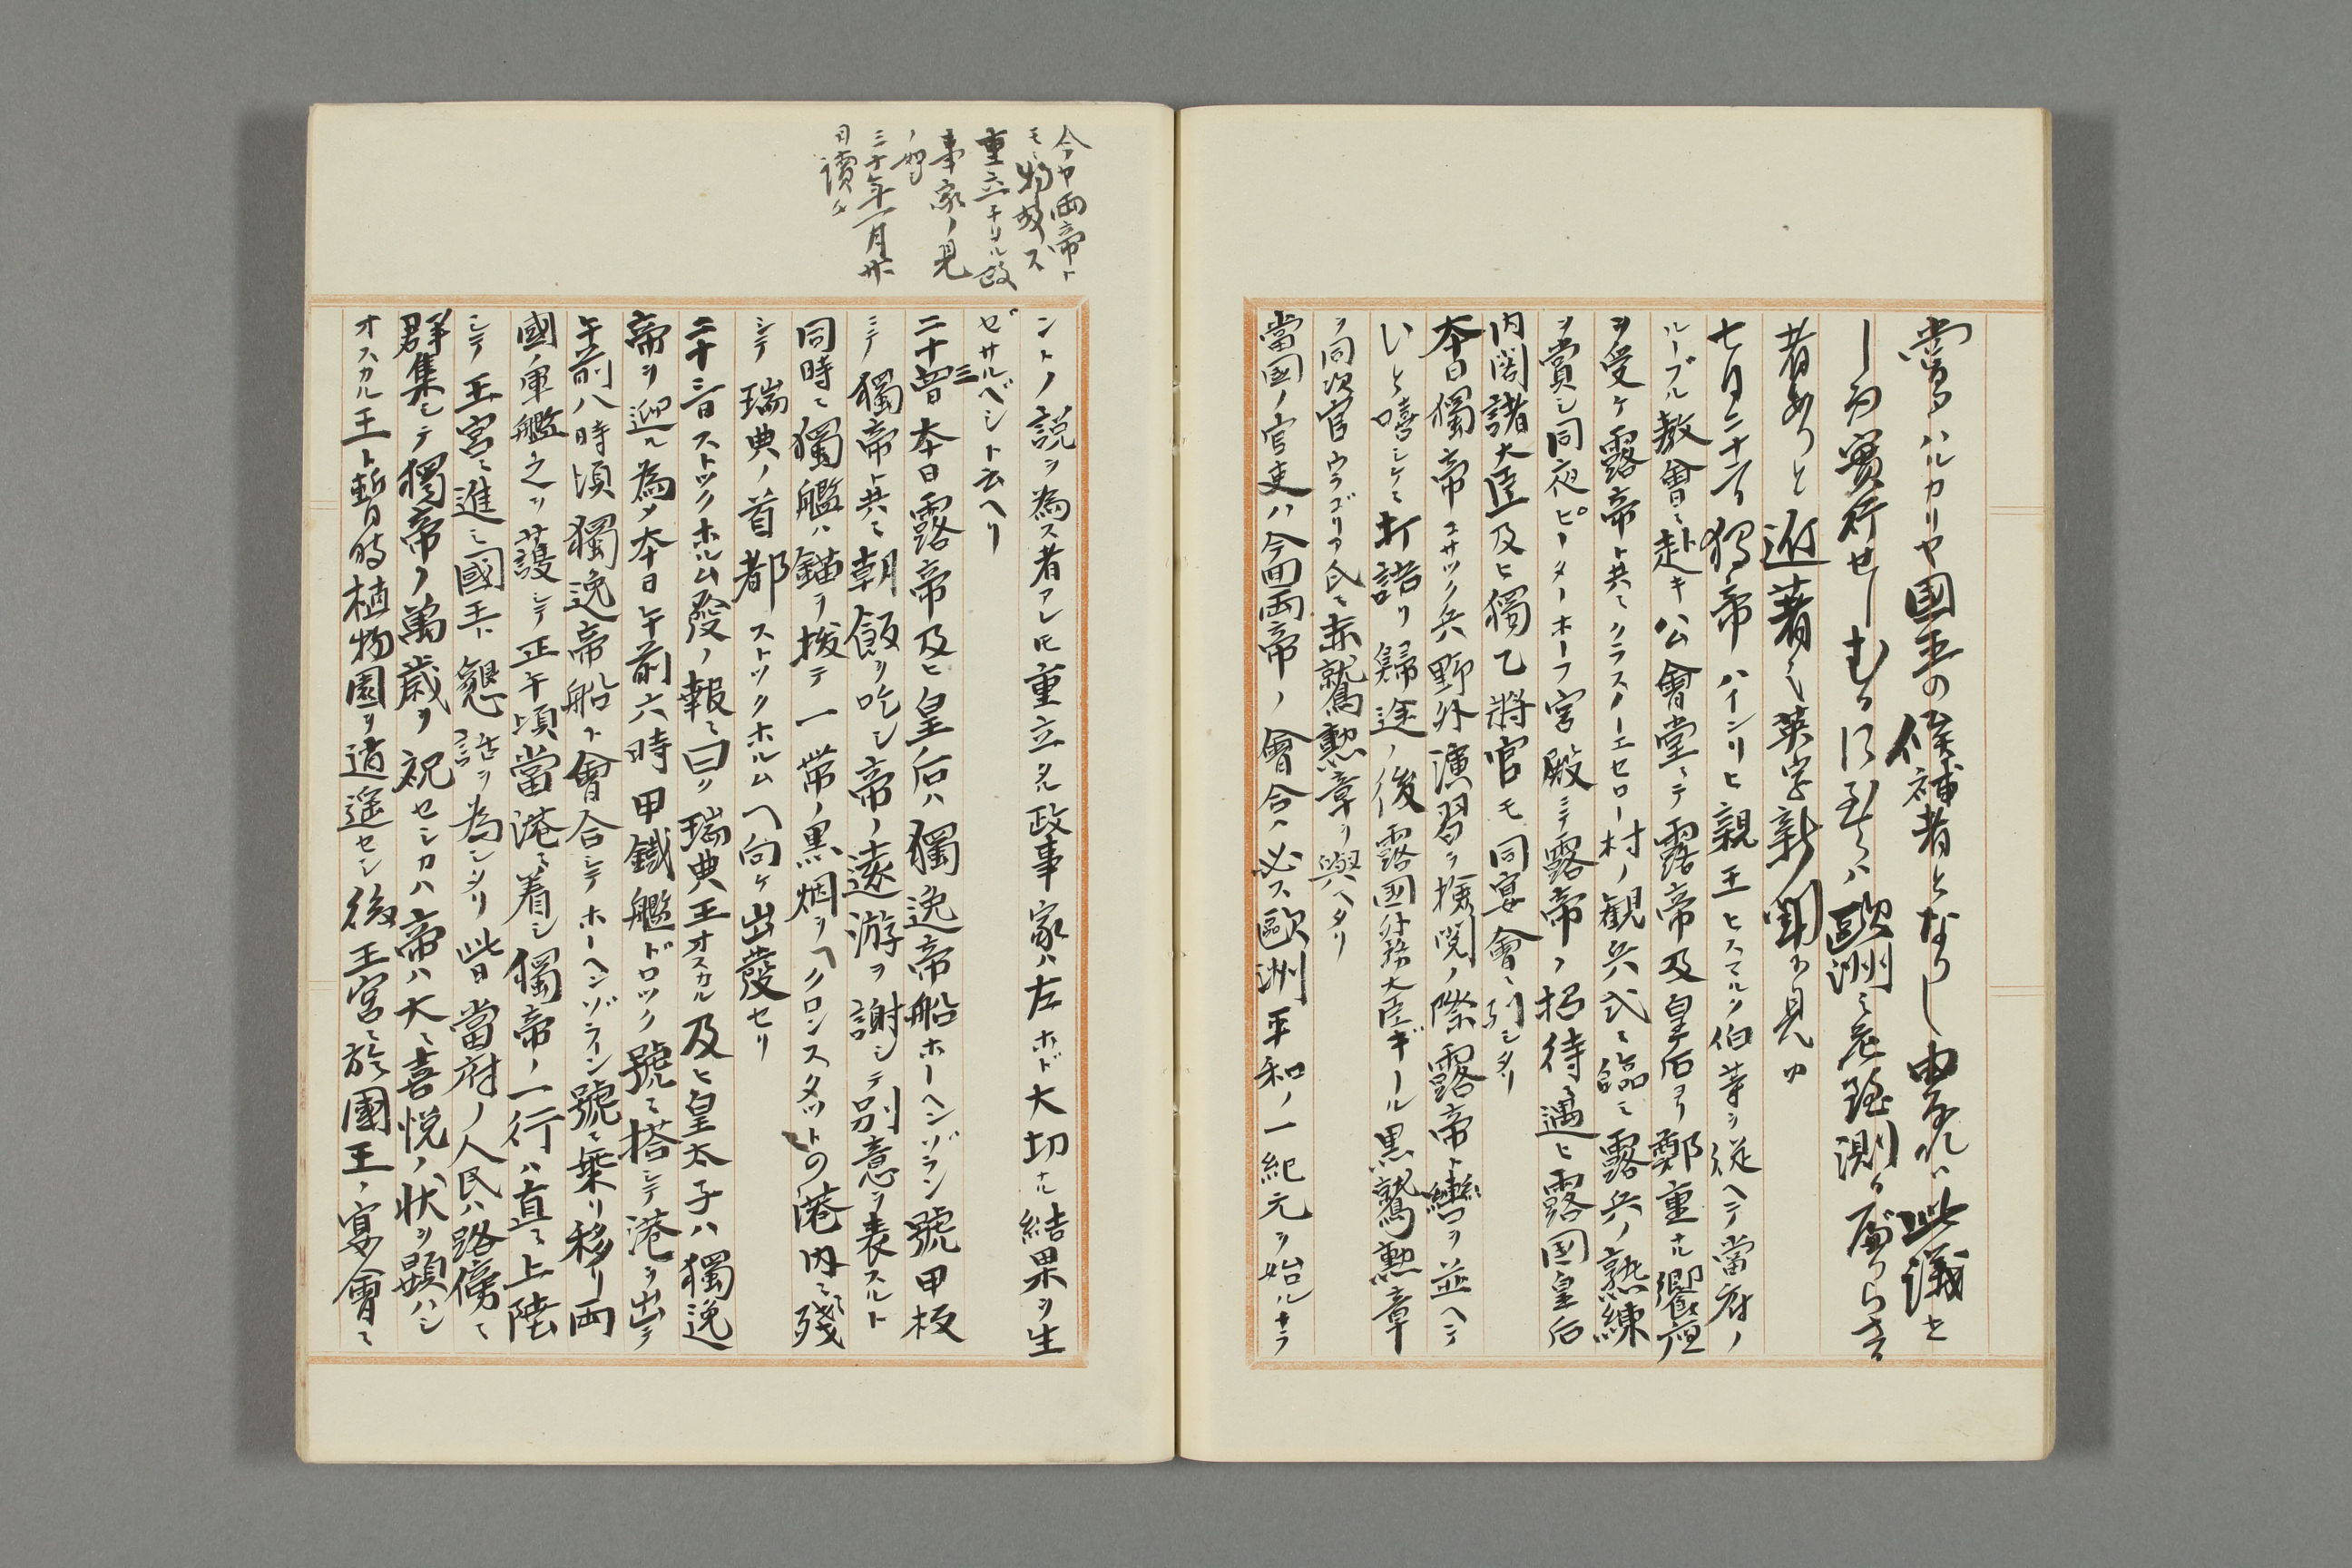 嘗てハルカリヤ国王の候補者となりし由なれバ此議を
して実行せしむるに至らハ歐洲之危殆測る可らさる
者あらんと近着之英字新聞ニ見ゆ
七月二十一日獨帝ハインリヒ親王ヒスマルク伯等ヲ従ヘテ當府ノ
ルーブル教會ニ赴キ公會堂ニテ露帝及皇后ヨリ鄭重ナル饗應
ヲ受ケ露帝ト共ニクラスノーエセロー村ノ観兵式ニ臨ミ露兵ノ熟練
ヲ賞シ同夜ピーターホーフ宮殿ニテ露帝ノ招待ニ遇ヒ露国皇后
内閣諸大臣及ヒ獨乙將官モ同宴會ニ列シタリ
本日獨帝コサック兵野外演習ヲ検閲ノ際露帝ト轡ヲ並ヘテ
いと嘻シケニ打語リ歸途ノ後露国外務大臣ギール黒鷲勲章
ヲ同次官ウラゴリア氏ニ赤鷲勲章ヲ與ヘタリ
當国ノ官吏ハ今回両帝ノ會合ハ必ス歐洲平和ノ一紀元ヲ始ルナラ
今ヤ両帝ト
モニ物故ス
重立チタル政
事家ノ見
ノ如シ
三十年一月廿
日讀ム
ントノ説ヲ為ス者アレ𪜈重立タル政事家ハ左ホド大切ナル結果ヲ生
ゼサルベシト云ヘリ
二十三日本日露帝及ヒ皇后ハ獨逸帝船ホーヘンゾラン號甲板
ニテ獨帝ト共ニ朝飯ヲ吃シ帝ノ遠游ヲ謝シテ別意ヲ表スルト
同時ニ獨艦ハ錨ヲ拔テ一帯ノ黒烟ヲクロンスタットの港内ニ殘
シテ瑞典ノ首都ストックホルムヘ向ケ出發セリ
二十三日ストックホルム發ノ報ニ曰ク瑞典王オスカル及ヒ皇太子ハ獨逸
帝ヲ迎ル為メ本日午前六時甲鐵艦ドロック號ニ搭シテ港ヲ出テ
午前八時頃獨逸帝船ト會合シテホーヘンゾライン號ニ乗リ移リ両
國ノ軍艦之ヲ護シテ正午頃當港ニ着シ獨帝ノ一行ハ直ニ上陸
シテ王宮ニ進ミ國王ト懇話ヲ為シタリ此日當府ノ人民ハ路傍ニ
群集シテ獨帝ノ萬歳ヲ祝セシカハ帝ハ大ニ喜悦ノ状ヲ顕ハシ
オスカル王ト暫時植物園ヲ逍遥セシ後王宮ニ於國王ノ宴會ニ